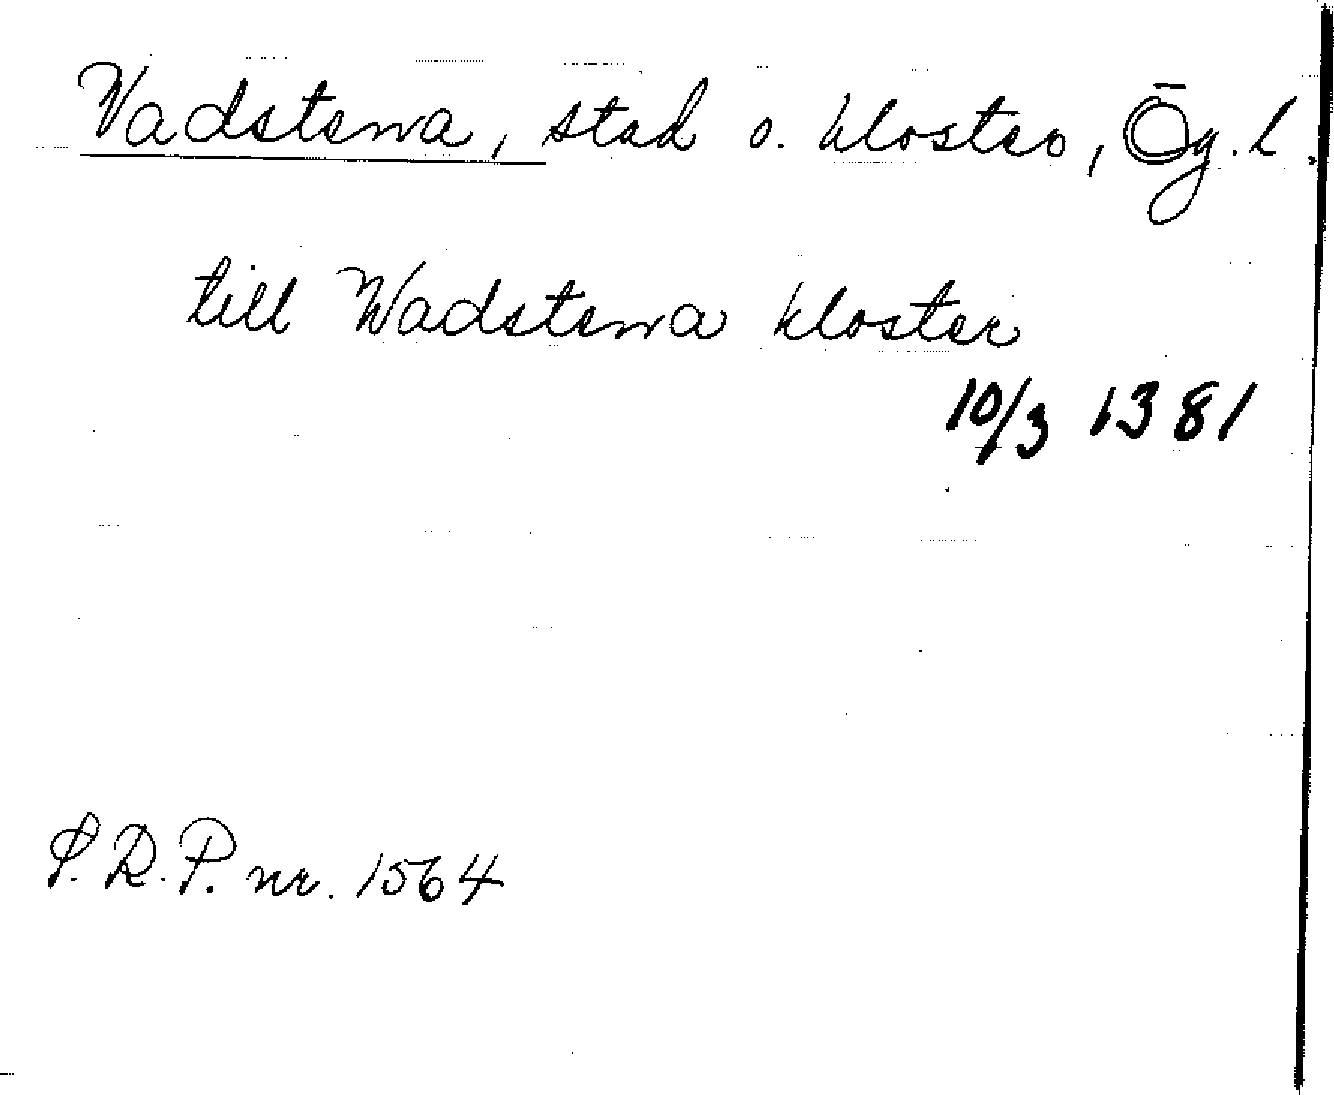 Vadstena, stad o. kloster, Ög. l.
till Wadstena kloster
10/3 1381
S.R.P. nr. 1564